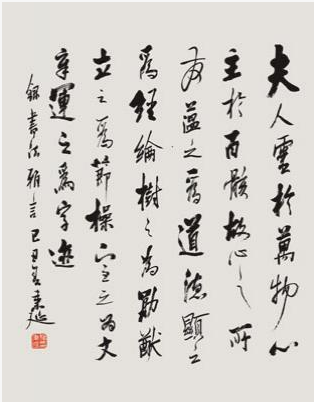 夫人靈於萬物心
主於百骸故心之所
發蘊之爲道德顯之
爲經綸樹之為勛猷
立之爲節操宣之為文
章運之爲字迹
錄書法雅言己丑冬